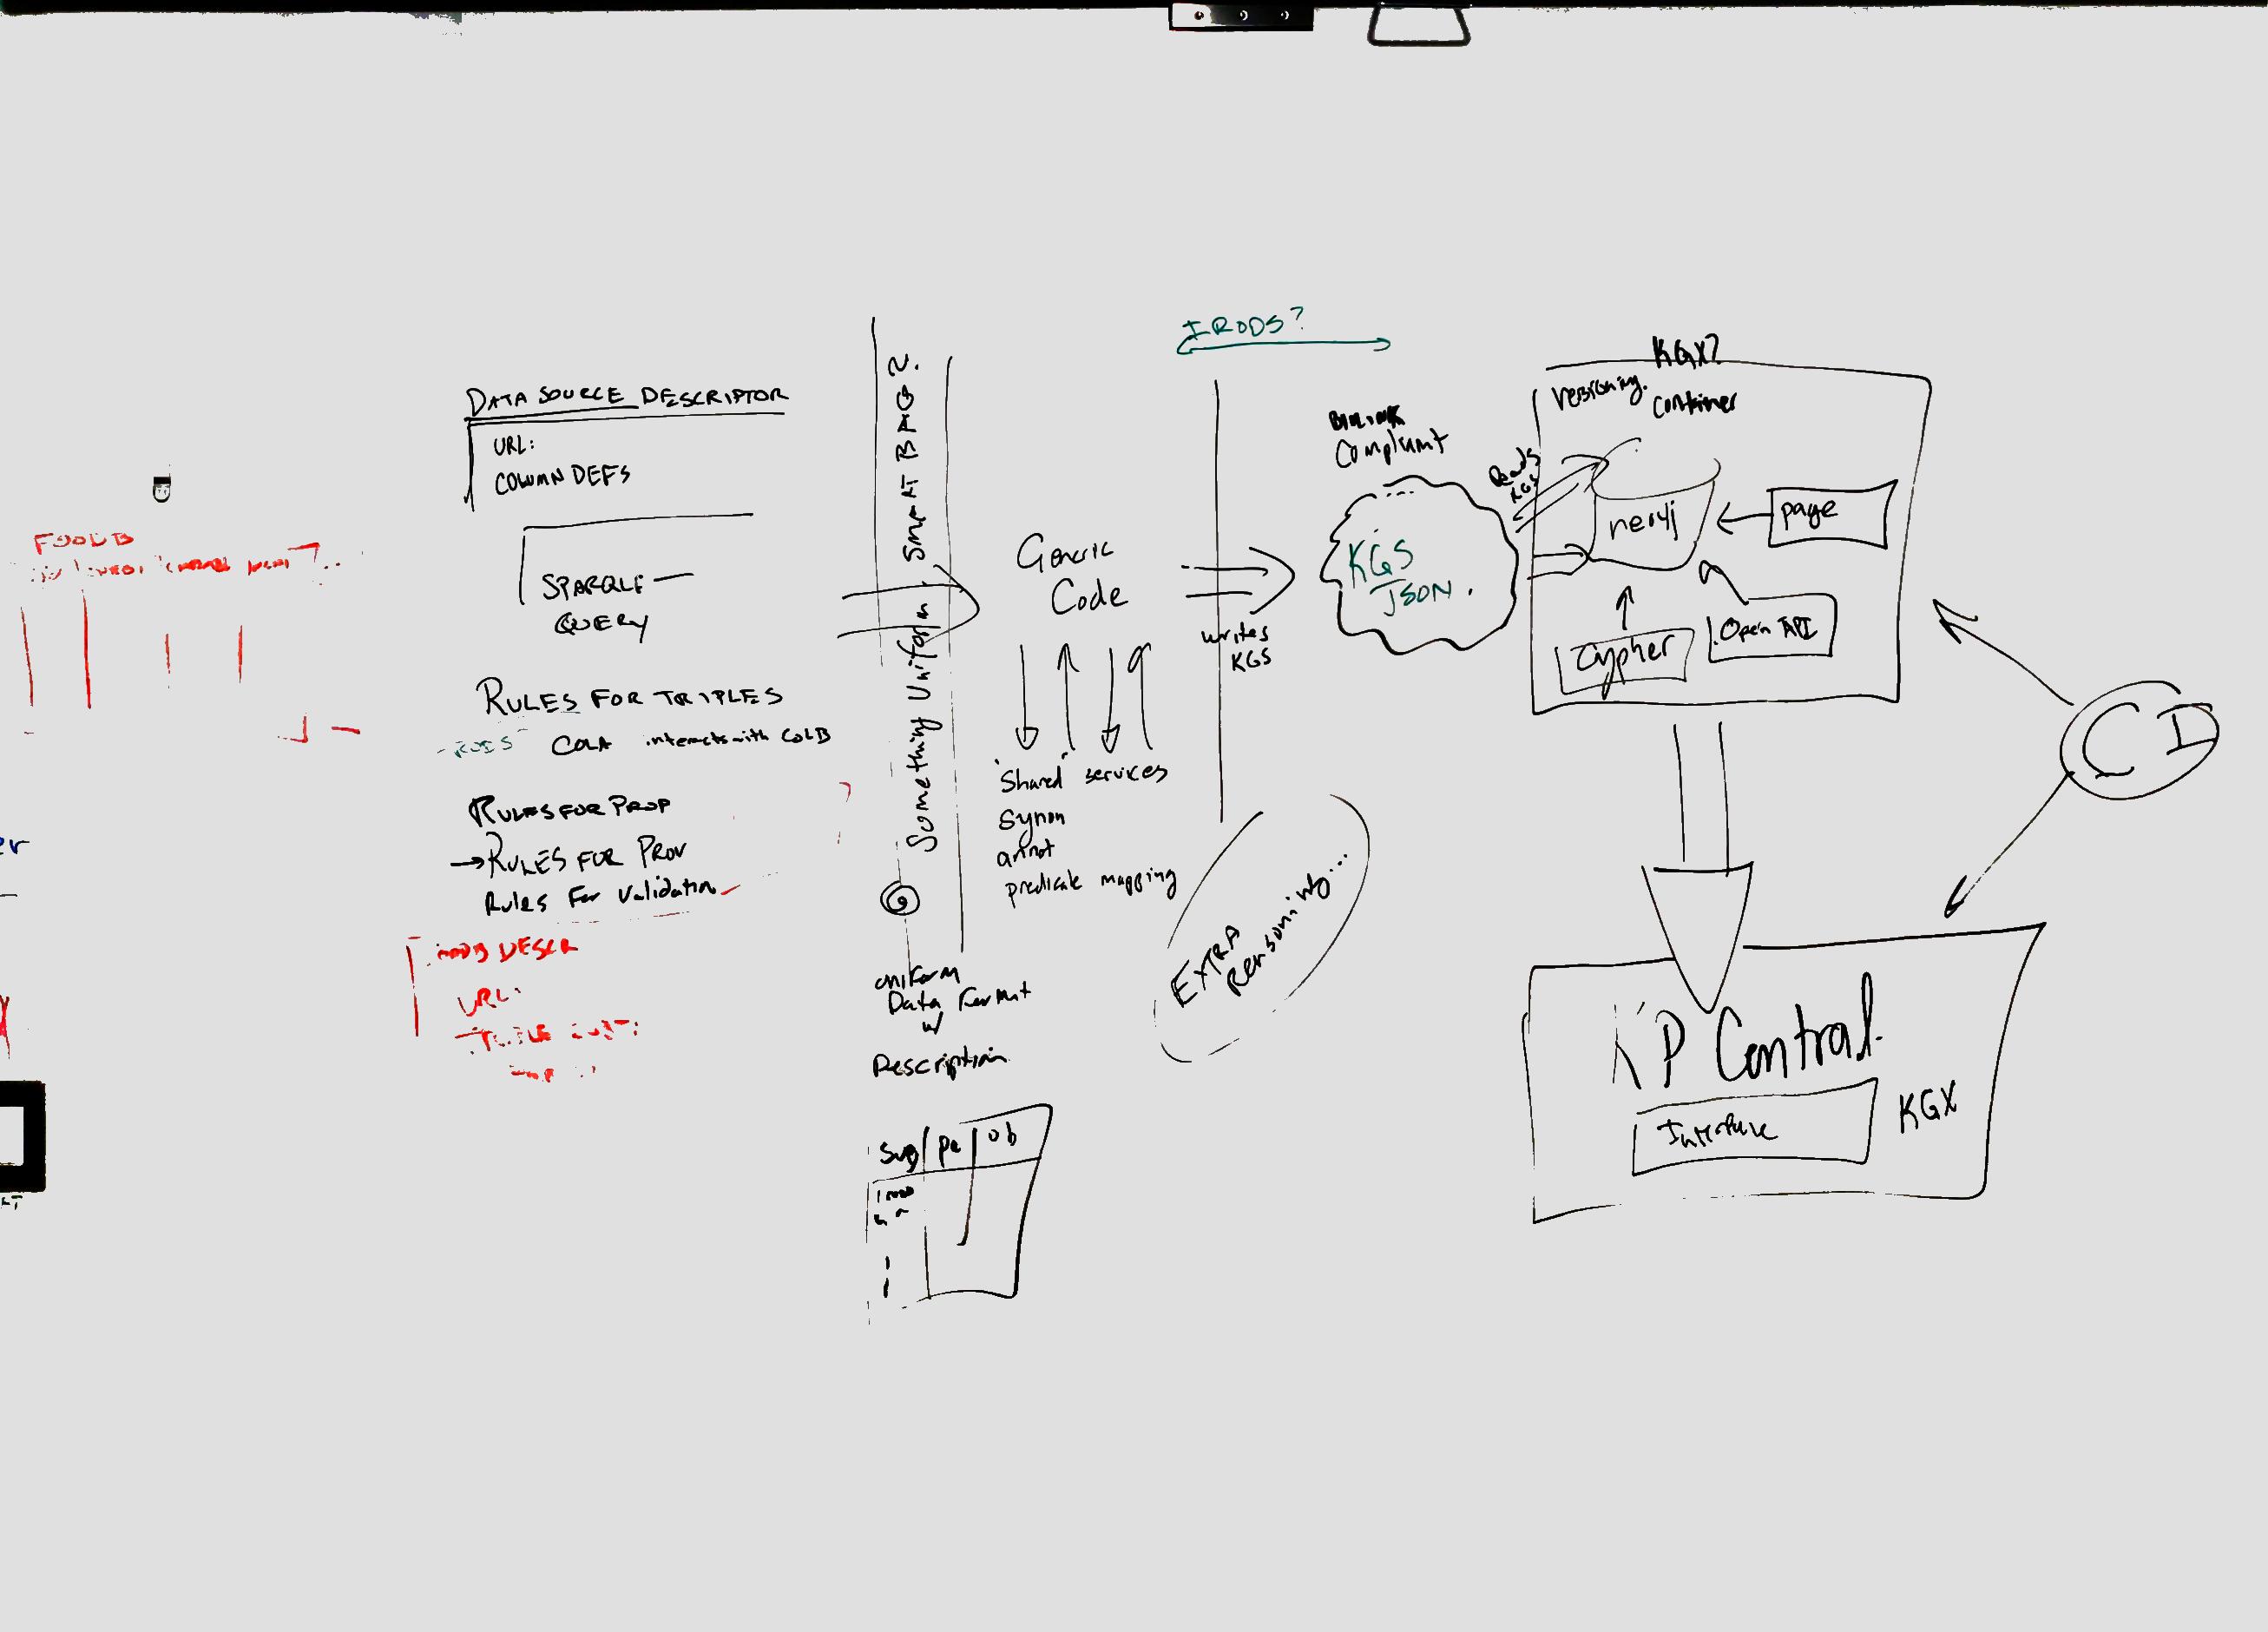 DATA SOURCE DESCRIPTOR
URL:
COLUMN DEFS
SPARQLE
QUERY
RULES FOR TRIPLES
COLA interacts with COLB
RULES FOR PROP
→ RULES FOR PROV
Rules For Validation
DESCR
URL:
FOODB
Something Uniform. SMART BAG?
uniform
Data Format
w/
Description
Sub pe ob
Generic
Code
"Shared" services
Synon
annot
predicate mapping
IRODS?
writes
KGS
EXTRA
Reasoning...
BIOLINK
Compliant
KGS
JSON.
Reads
KGS
KGX?
Versioning.
Container
neo4j
page
Cypher
Open API
CI
KP Central.
Interface
KGX